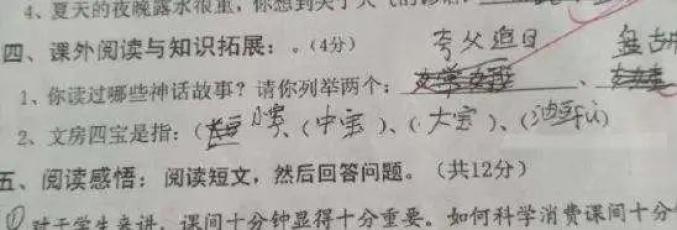 4、夏天的夜晚露水很重，你想到关于天气的
四、课外阅读与知识拓展：。(4分) 夸父追日 盘古
1、你读过哪些神话故事？请你列举两个： 、
2、文房四宝是指：( 小宝、(中宝)、(大宝)、( )
五、阅读感悟：阅读短文，然后回答问题。(共12分)
① 对于学生来讲，课间十分钟显得十分重要。如何科学消费课间十分